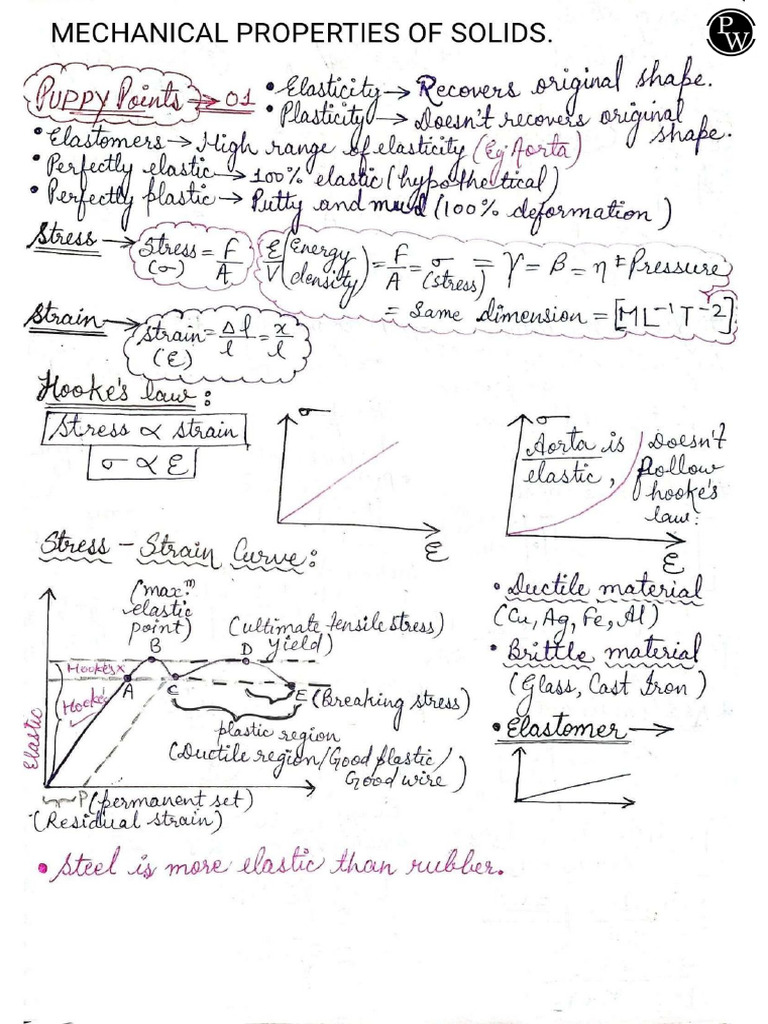 MECHANICAL PROPERTIES OF SOLIDS.
PW
PUPPY Points → 01
• Elasticity → Recovers original shape.
• Plasticity → Doesn't recovers original shape.
• Elastomers → High range of elasticity (Eg: Aorta)
• Perfectly elastic → 100% elastic (hypothectical)
• Perfectly plastic → Putty and mud (100% deformation)
Stress → Stress = F/A
(σ)
E/V (Energy density) = F/A = σ (stress) = Y = B = η = Pressure
= Same dimension = [ML⁻¹T⁻²]
Strain → Strain = Δl/l = x/l
(ε)
Hooke's law :
Stress ∝ strain
σ ∝ ε
σ
ε
σ
Aorta is elastic,
Doesn't follow hooke's law.
ε
Stress - Strain Curve:
(maxᵐ elastic point)
B
(ultimate tensile stress)
D yield)
Hooke's x
Hooke's ✓
A
C
E (Breaking stress)
Elastic
plastic region
(Ductile region/Good plastic/
Good wire)
P (permanent set)
(Residual strain)
• Ductile material
(Cu, Ag, Fe, Al)
• Brittle material
(Glass, Cast Iron)
• Elastomer →
• Steel is more elastic than rubber.